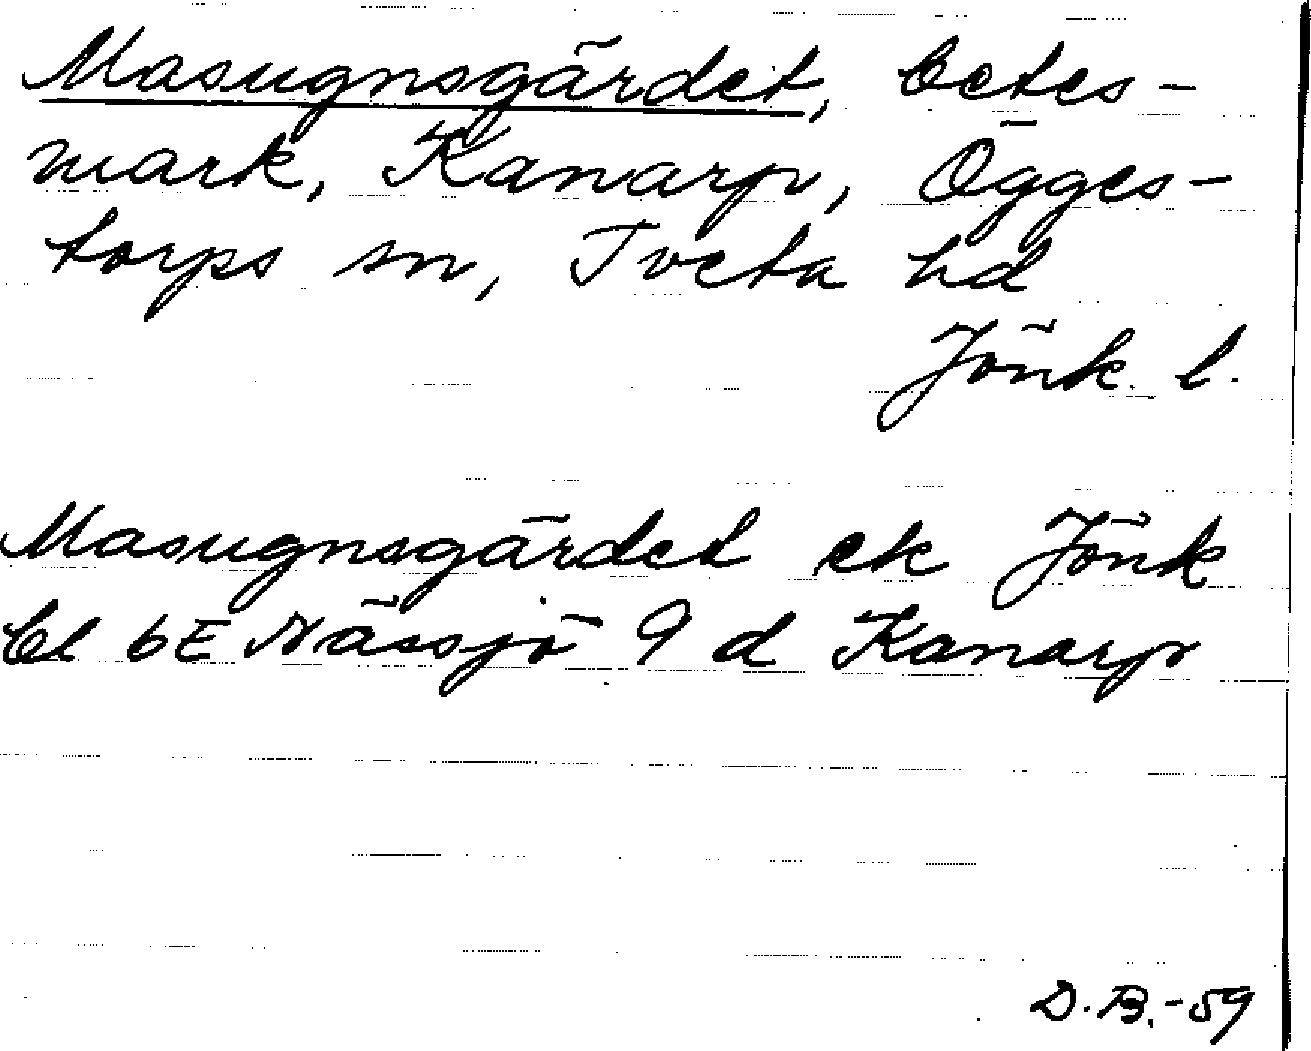 Masugnsgärdet, betes-
mark, Kanarp, Ögges-
torps sn, Tveta hd
Jönk. l.
Masugnsgärdet ek Jönk
bl 6E Nässjö 9 d Kanarp
D.B.-59